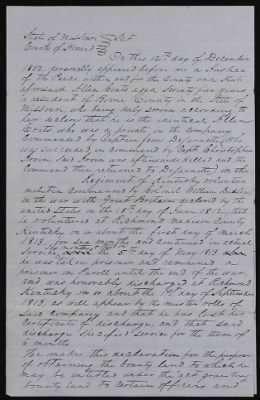 State of Missouri } Sct
County of Boone }
On this 12th day of December
1850, personally appeared before me a Justice
of the Peace within and for the County and State
aforesaid Allen Coats aged Seventy five years,
a resident of Boone County in the State of
Missouri, who being duly sworn according to
law declares that he is the identical Allen
Coats who was a private in the company
Commanded by Captain
succeeded in command by Capt Christopher
Irvin, said Irvin was afterwards killed and the
Command then returned to Dejarnatt) in the
Regiment of Kentucky volunteer
militia commanded by Colonel William Dudley
in the war with Great Britain declared by the
United States on the 18th day of June 1812, that
he volunteered at Richmond Madison County
Kentucky on or about the first day of March
1813 for six months and continued in actual
Service the 5th day of May 1813 when
he was taken prisoner and remained a
prisoner on Parroll until the end of the war,
and was honorably discharged at Richmond
Kentucky on or about the 1st day of September
1813 as will appear by the muster rolls of
said Company and that he has lost his
Certificate of discharge, and that said
discharge specified service for the term of
6 months.
He makes this declaration for the purpose
of obtaining the bounty land to which he
may be entitled under the act granting
bounty land to certain officers and